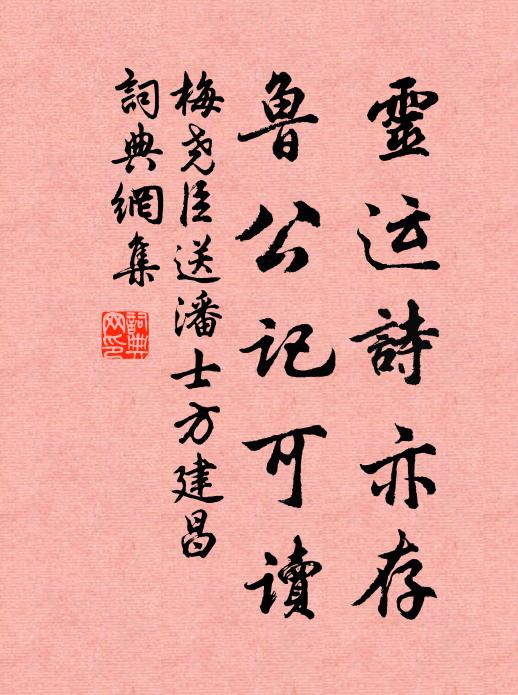 靈运詩亦存
魯公記可讀
梅尧臣送潘士方建昌
詞典網集
詞典
网印